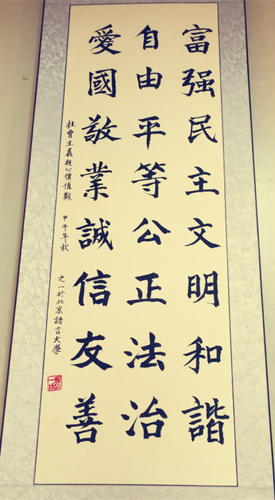 富强民主文明和諧
自由平等公正法治
愛國敬業誠信友善
社會主義核心價值觀 甲午年秋 之一於北京語言大學